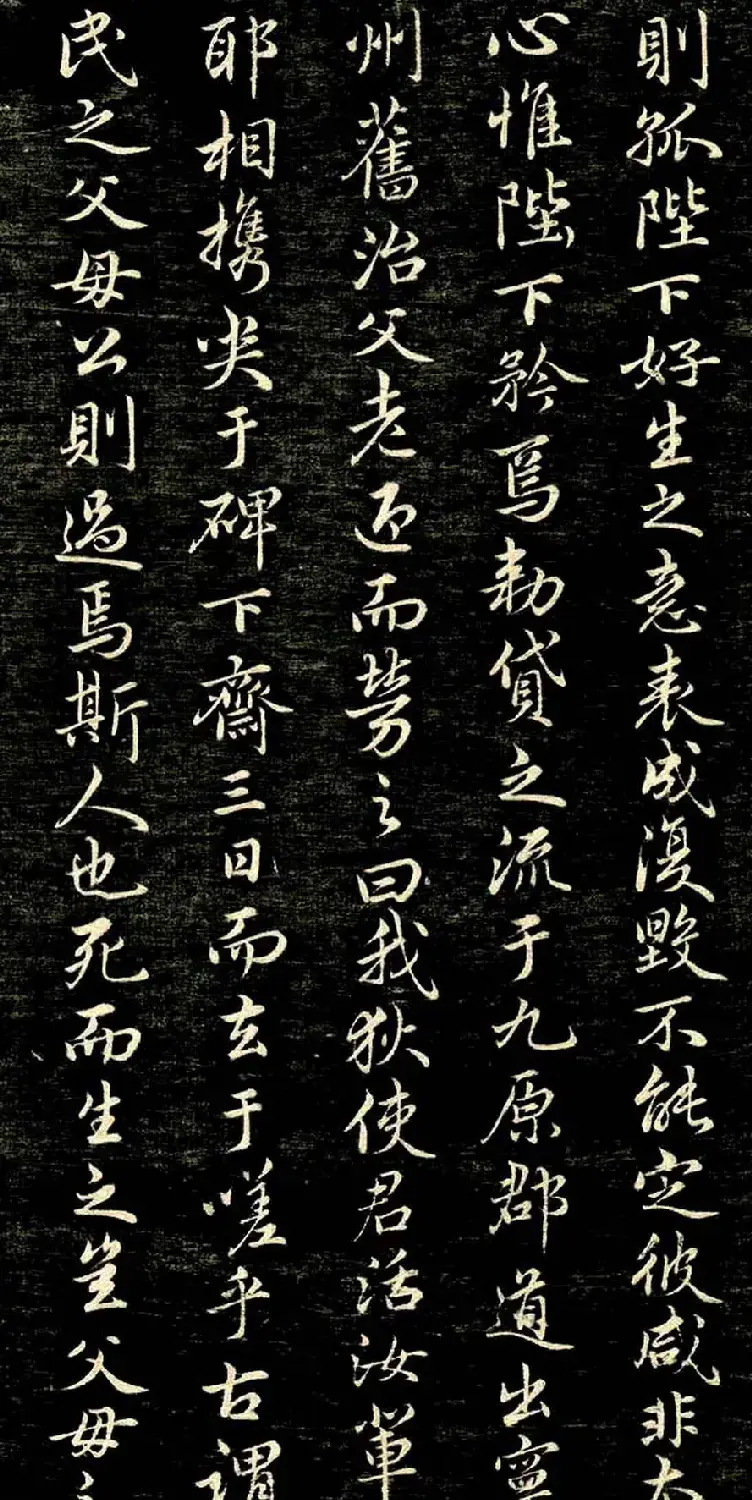 則孤陛下好生之意表成復毀不能定彼咸非本
心惟陛下矜焉勅貸之流于九原郡道出寧
州舊治父老迎而勞之曰我狄使君活汝輩
耶相攜哭于碑下齋三日而去于嗟乎古謂
民之父母公則過焉斯人也死而生之豈父母之